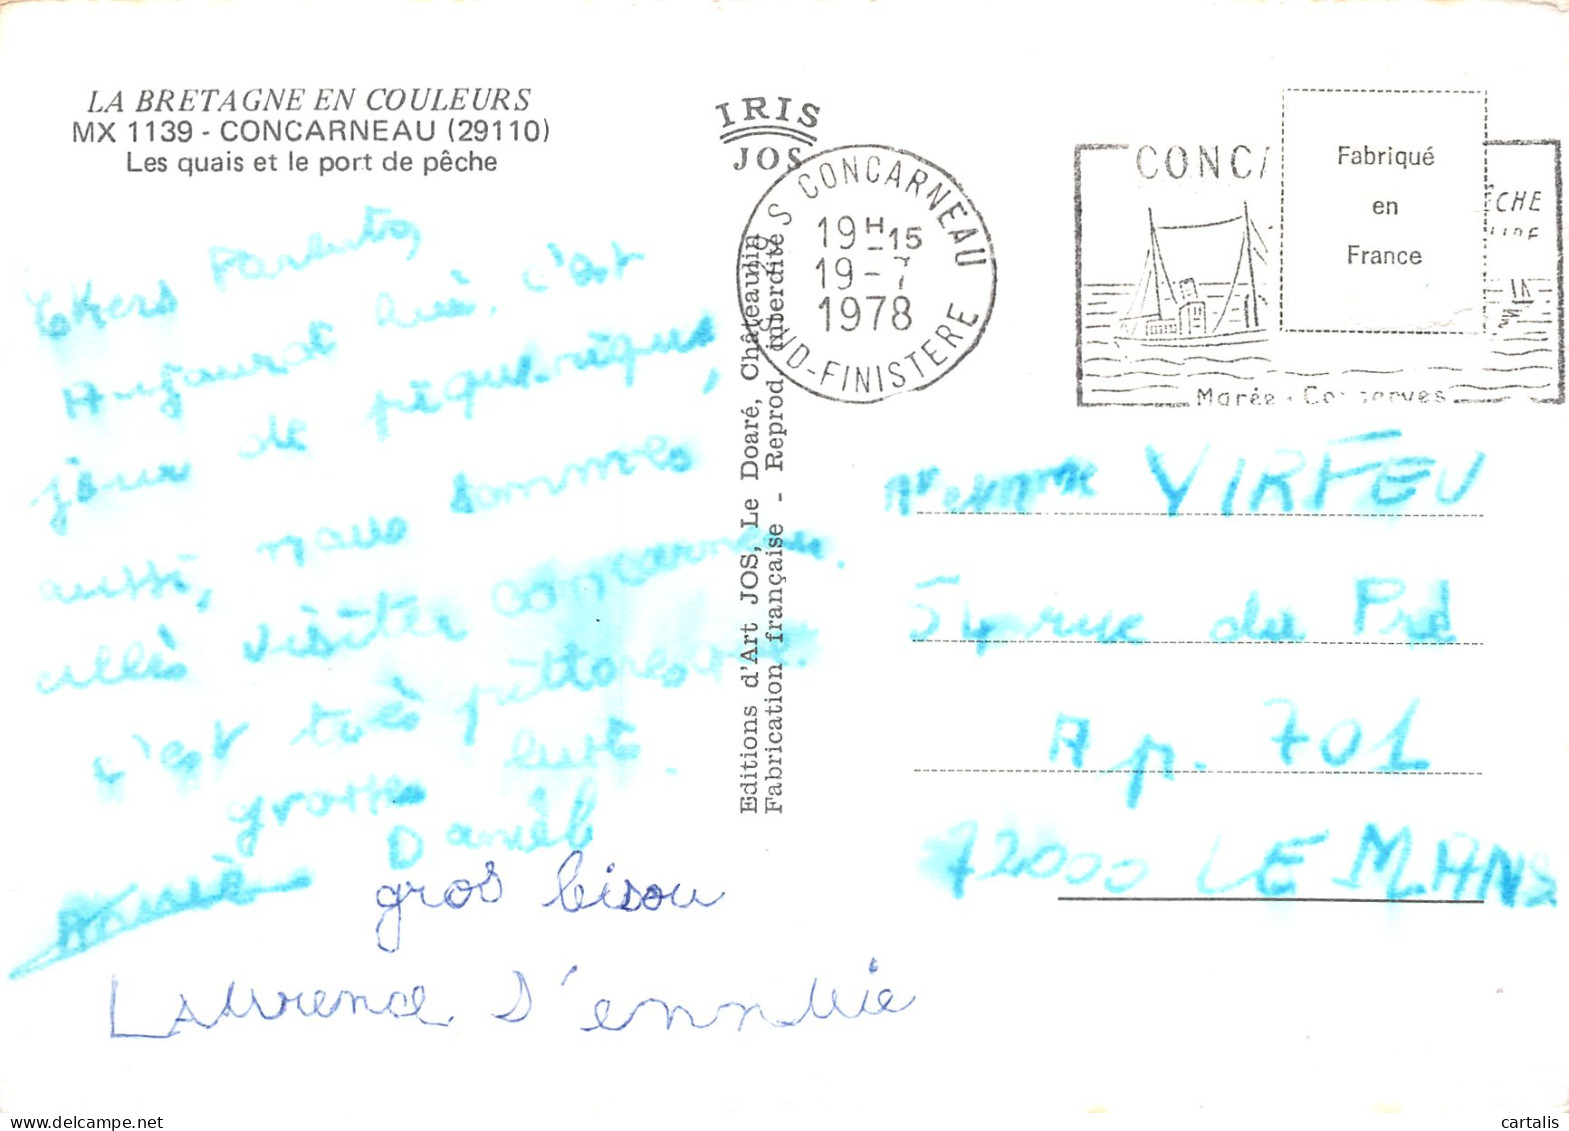 LA BRETAGNE EN COULEURS
MX 1139 - CONCARNEAU (29110)
Les quais et le port de pêche
IRIS
JOS
S CONCARNEAU
19H-15
19-7
1978
SUD-FINISTERE
CONCA
Fabriqué
en
France
ÊCHE
Marée - Conserves
Editions d'Art JOS, Le Doaré, Châteaulin
Fabrication française - Reprod. interdite
Chers Parents,
Aujourd'hui, c'est
jour de pique-nique,
aussi, nous sommes
allés visiter Concarneau.
c'est très pittoresque.
grosses
Daniel
gros bisou
Laurence S'ennuie
Mr et Mme VIRFEU
rue du Pré
Ap. 701
72000 LE MANS
cartalis